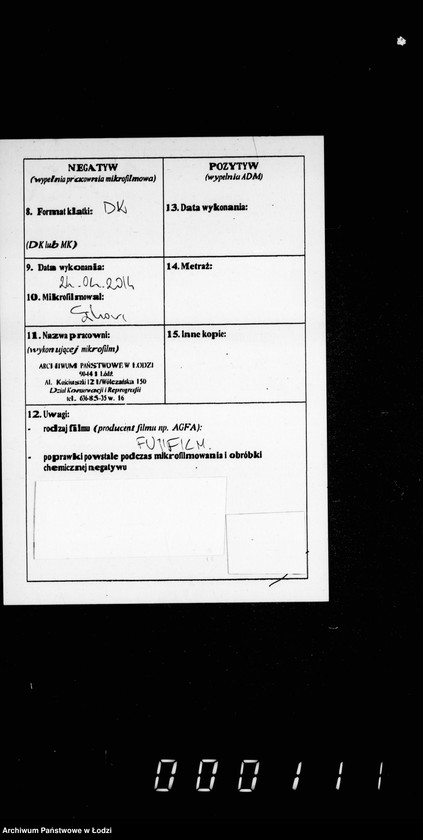 NEGATYW
(wypełnia pracownia mikrofilmowa)
8. Format klatki: DK
(DK lub MK)
9. Data wykonania:
24.04.2014
10. Mikrofilmował:
11. Nazwa pracowni:
(wykonującej mikrofilm)
ARCHIWUM PAŃSTWOWE W ŁODZI
Łódź
Al. Kościuszki 121/Wólczańska 150
Dział Konserwacji i Reprografii
tel. 636-83-35 w. 16
POZYTYW
(wypełnia ADM)
13. Data wykonania:
14. Metraż:
15. Inne kopie:
12. Uwagi:
- rodzaj filmu (producent filmu np. AGFA):
FUJIFILM.
- poprawki powstałe podczas mikrofilmowania i obróbki
chemicznej negatywu
000111
Archiwum Państwowe w Łodzi